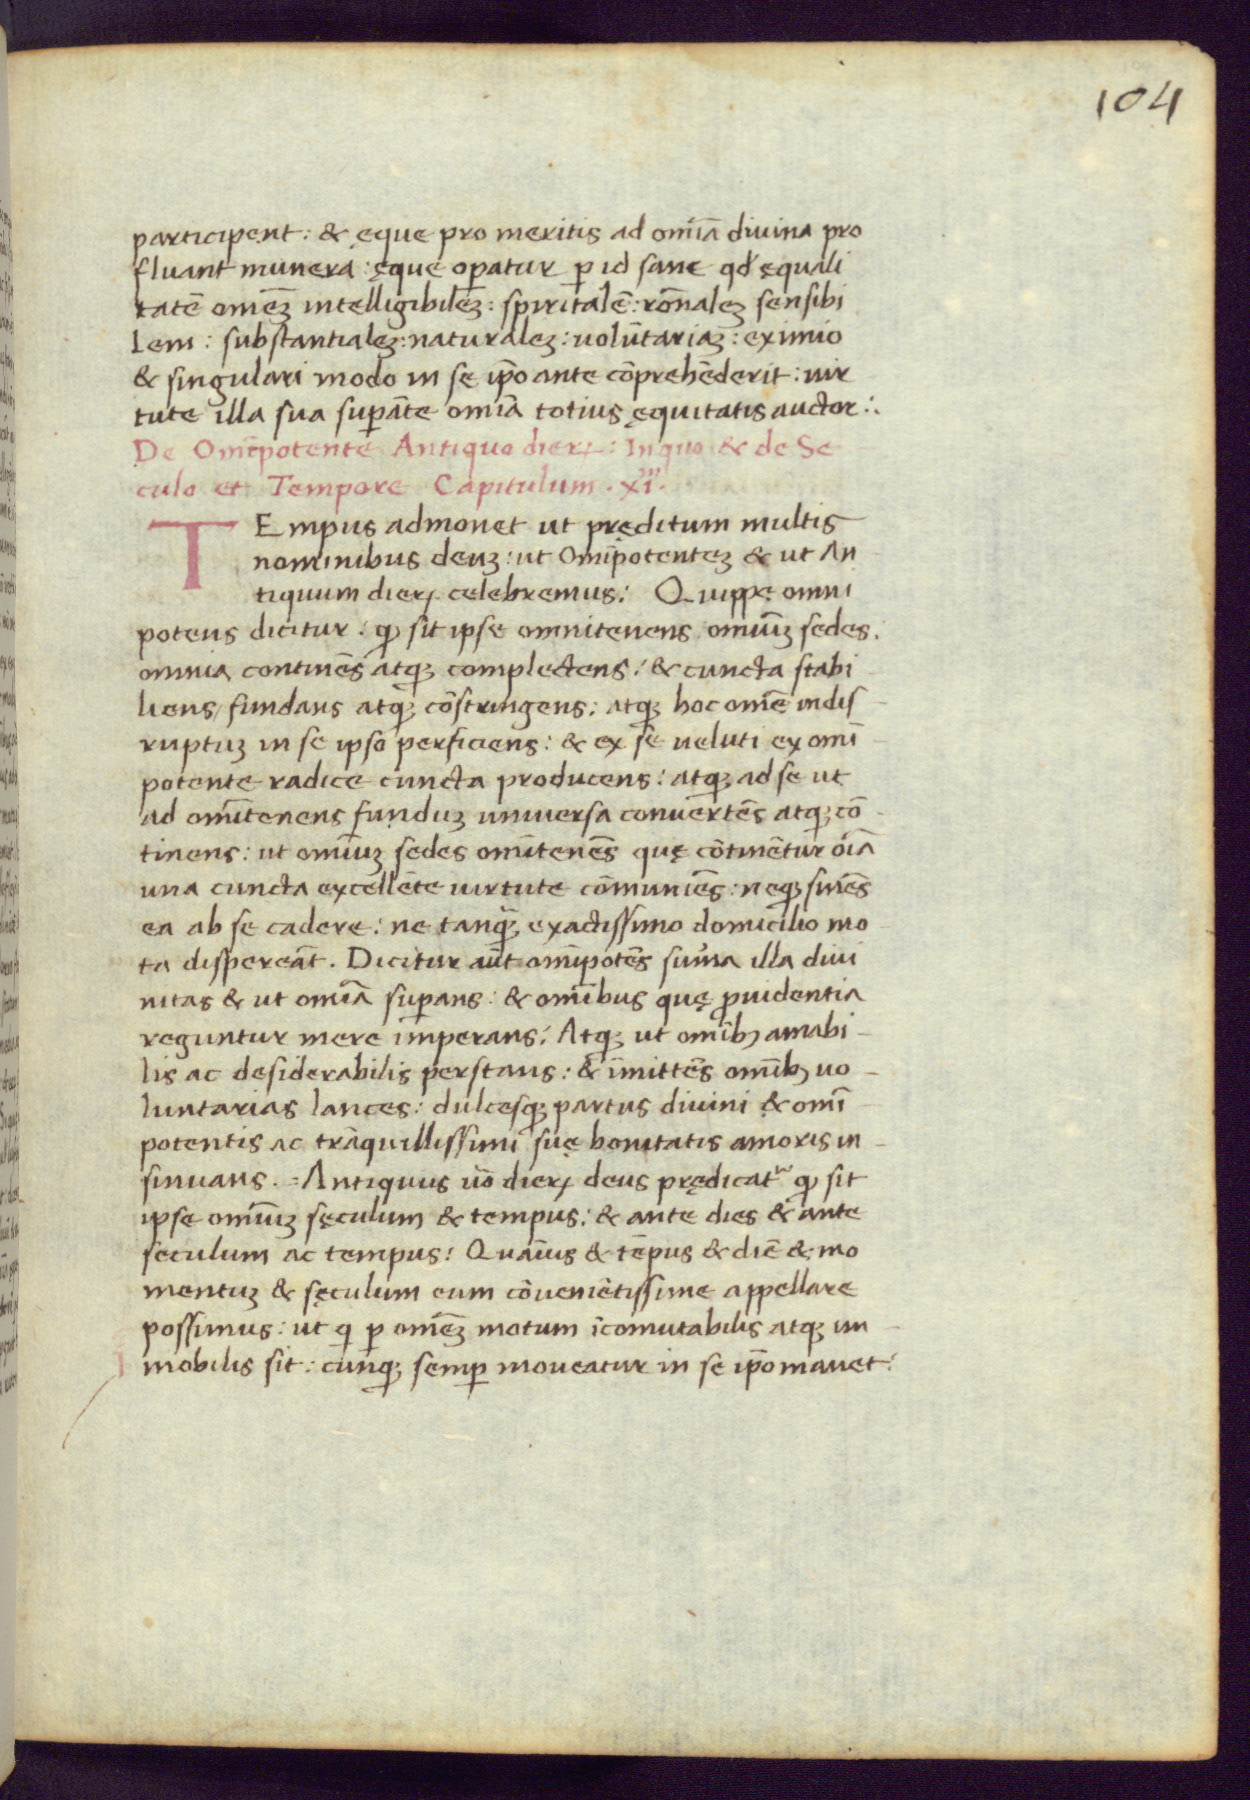 104
participent: & ęque pro meritis ad om̄ia divina pro
fluant munera: ęque op̱atur p̱ id sane qđ ęquali
tatē omēꝫ intelligibilēꝫ: spiritalē: rōnalēꝫ sensibi
lem: substantialeꝫ: naturaleꝫ: volūtariaꝫ: eximio
& singulari modo in se ip̄o ante cōprehēderit: vir
tute illa sua sup̱āte om̄ia totius ęquitatis auctor:.
De Om̄ipotente Antiquo dieꝝ: In quo & de Se
culo et Tempore Capitulum .xiᵐ.
TEmpus admonet ut pręditum multis
nominibus deuꝫ: ut Om̄ipotenteꝫ & ut An
tiquum dieꝝ celebremus: Quippe omni
potens dicitur: ꝙ sit ipse omnitenens omīuꝫ sedes.
omnia continēs atqꝫ complectens: & cuncta stabi
liens/ fundans atqꝫ cōstringens: atqꝫ hoc omē indis
ruptuꝫ in se ipso perficiens: & ex se veluti ex omī
potente radice cuncta producens: atqꝫ ad se ut
ad om̄itenens funduꝫ universa convertēs atqꝫ cō
tinens: ut omīuꝫ sedes om̄itenēs quę cōtinētur oīa
una cuncta excellēte virtute cōmuniēs: neqꝫ sinēs
ea ab se cadere: ne tanqꝫ exactissimo domicilio mo
ta dispereāt. Dicitur aūt om̄ipotēs sum̄a illa divi
nitas & ut om̄ia sup̱ans: & om̄ibus quę ꝓvidentia
reguntur mere imperans: Atqꝫ ut om̄ibꝫ amabi
lis ac desiderabilis perstans: & īmittēs om̄ibꝫ vo
luntarias lances: dulcesqꝫ partus divini & omī
potentis ac trāquillissimi suę bonitatis amoris in
sinuans. Antiquus v̄o dieꝝ deus prędicatʳ ꝙ sit
ipse omīuꝫ sęculum & tempus: & ante dies & ante
seculum ac tempus: Quāvis & tēpus & diē & mo
mentuꝫ & sęculum eum cōvenietissime appellare
possimus: ut qͥ p̱ omēꝫ motum īcomutabilis atqꝫ im
mobilis sit: cūnqꝫ semp̱ moveatur in se ip̄o manet: